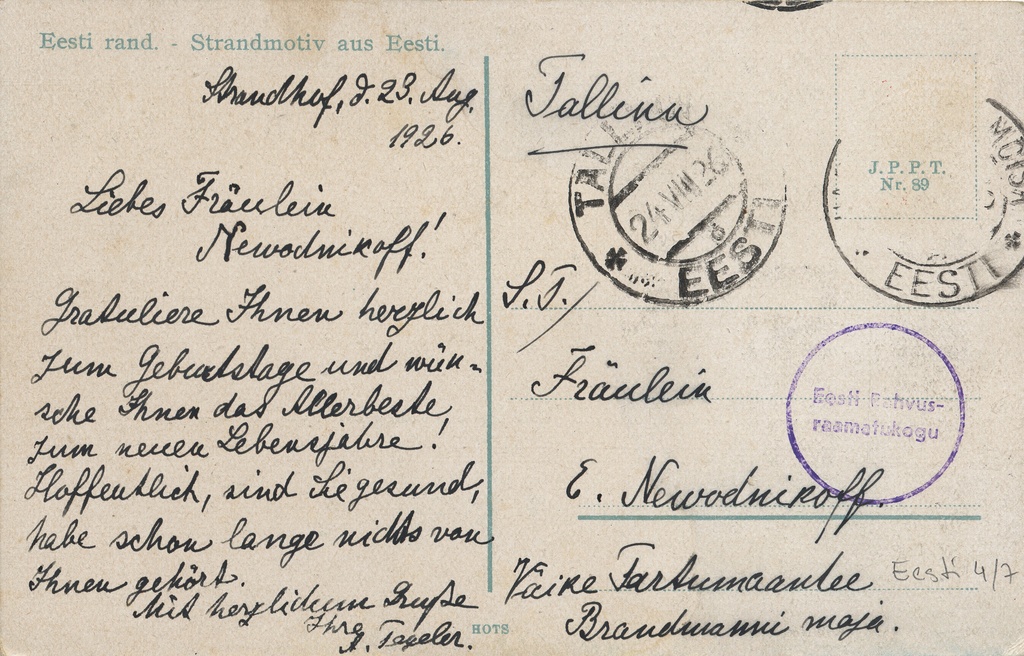 Eesti rand. - Strandmotiv aus Eesti.
Strandhof, d. 23. Aug.
1926.
Liebes Fräulein
Newodnikoff!
Gratuliere Ihnen herzlich
zum Geburtstage und wün-
sche Ihnen das Allerbeste
zum neuen Lebensjahre!
Hoffentlich, sind Sie gesund,
habe schon lange nichts von
Ihnen gehört.
Mit herzlichem Gruße
Ihre
A. Tegeler.
HOTS
Tallinn
TALLINN
24 VIII 26
d
EESTI
J. P. P. T.
Nr. 89
MÕISA
EESTI
S. T.
Fräulein
Eesti Rahvus-
raamatukogu
E. Newodnikoff.
Väike Tartumaantee
Brandmanni maja.
Eesti 4/7